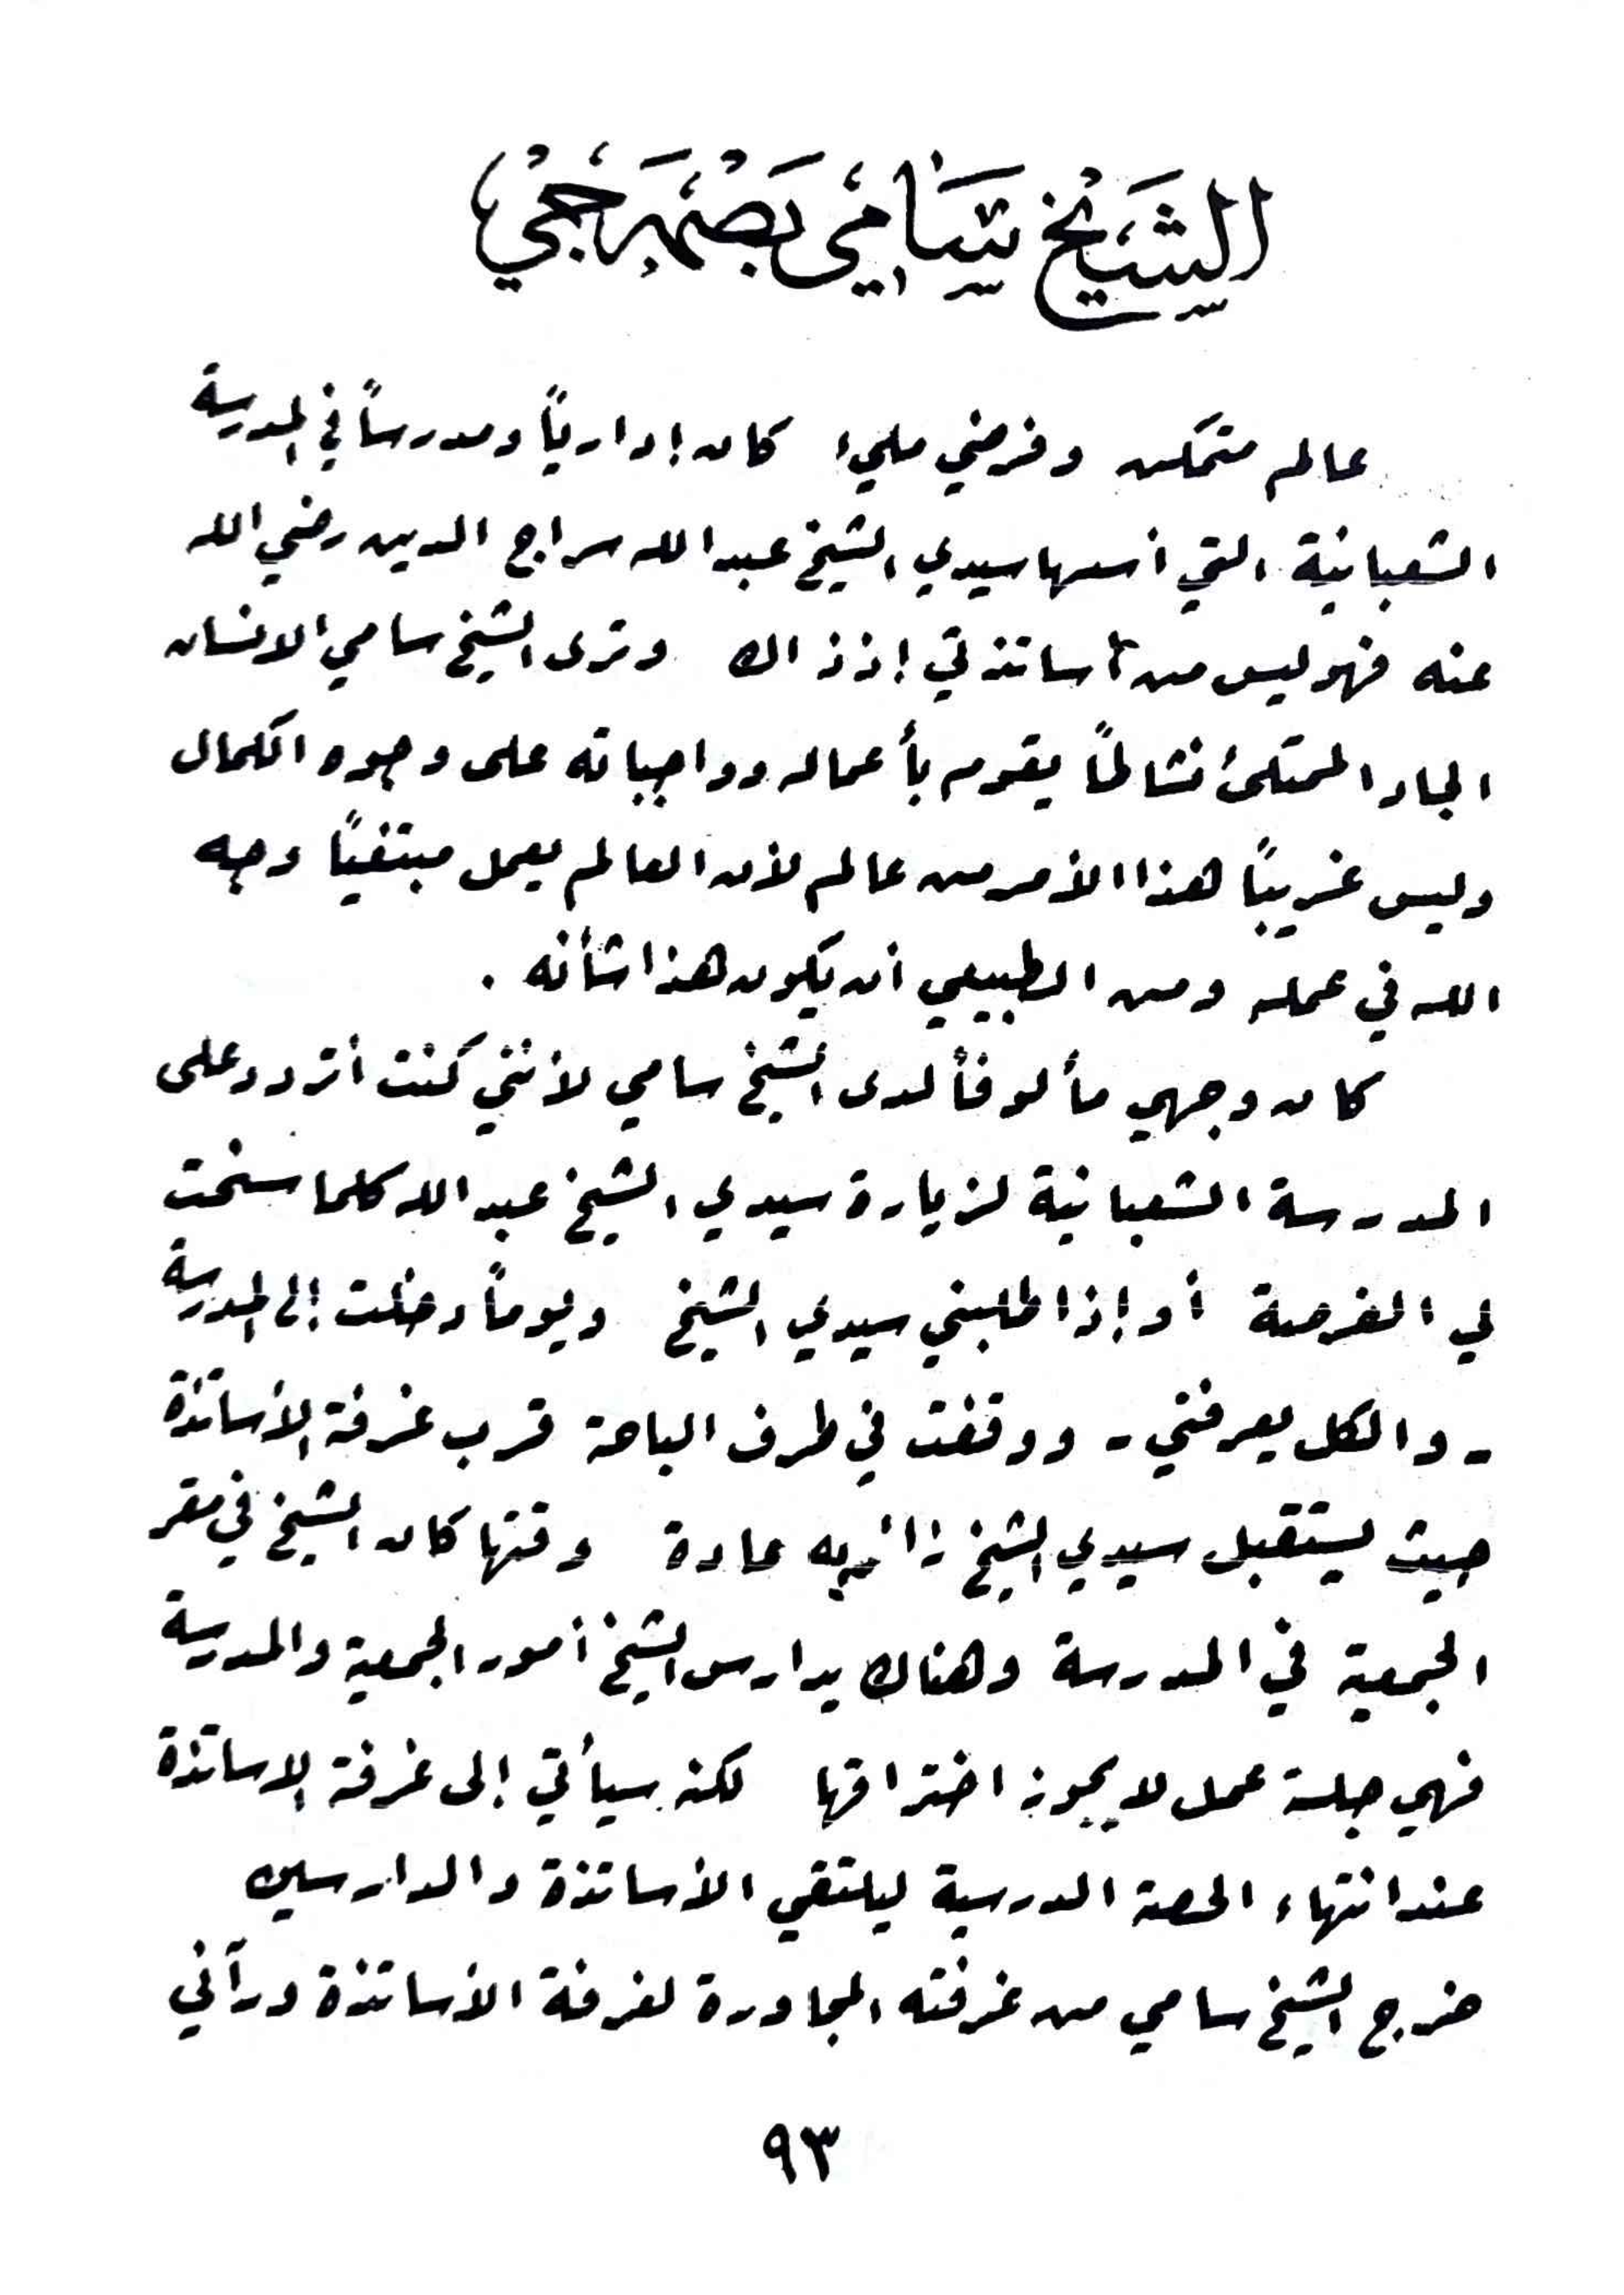 الشَيْخ سَامِي بَصْمَه جَيْ
عالم متمكن وفرضي مليء كان إدارياً ومدرساً في المدرسة
الشعبانية التي أسسها سيدي الشيخ عبد الله سراج الدين رضي الله
عنه فهو ليس من أساتذتي إذ ذاك وترى الشيخ سامي الانسان
الجاد الممتلئ نشاطاً يقوم بأعماله وواجباته على وجوه الكمال
وليس غريباً هذا الأمر من عالم لأن العالم يعمل مبتغياً وجه
الله في عمله ومن الطبيعي أن يكون هذا شأنه .
كان وجهي مألوفاً لدى الشيخ سامي لأنني كنت أتردد على
المدرسة الشعبانية لزيارة سيدي الشيخ عبد الله كلما سنحت
لي الفرصة أو إذا طلبني سيدي الشيخ ويوماً دخلت إلى المدرسة
- والكل يعرفني - ووقفت في طرف الباحة قرب غرفة الأساتذة
حيث يستقبل سيدي الشيخ زائريه عادة وقتها كان الشيخ في مقر
الجمعية في المدرسة وهناك يدارس الشيخ أمور الجمعية والمدرسة
فهي جلسة عمل لا يجوز اختراقها لكنه سيأتي إلى غرفة الاساتذة
عند انتهاء الحصة الدرسية ليلتقي الأساتذة والدارسين
خرج الشيخ سامي من غرفته المجاورة لغرفة الأساتذة ورآني
٩٣